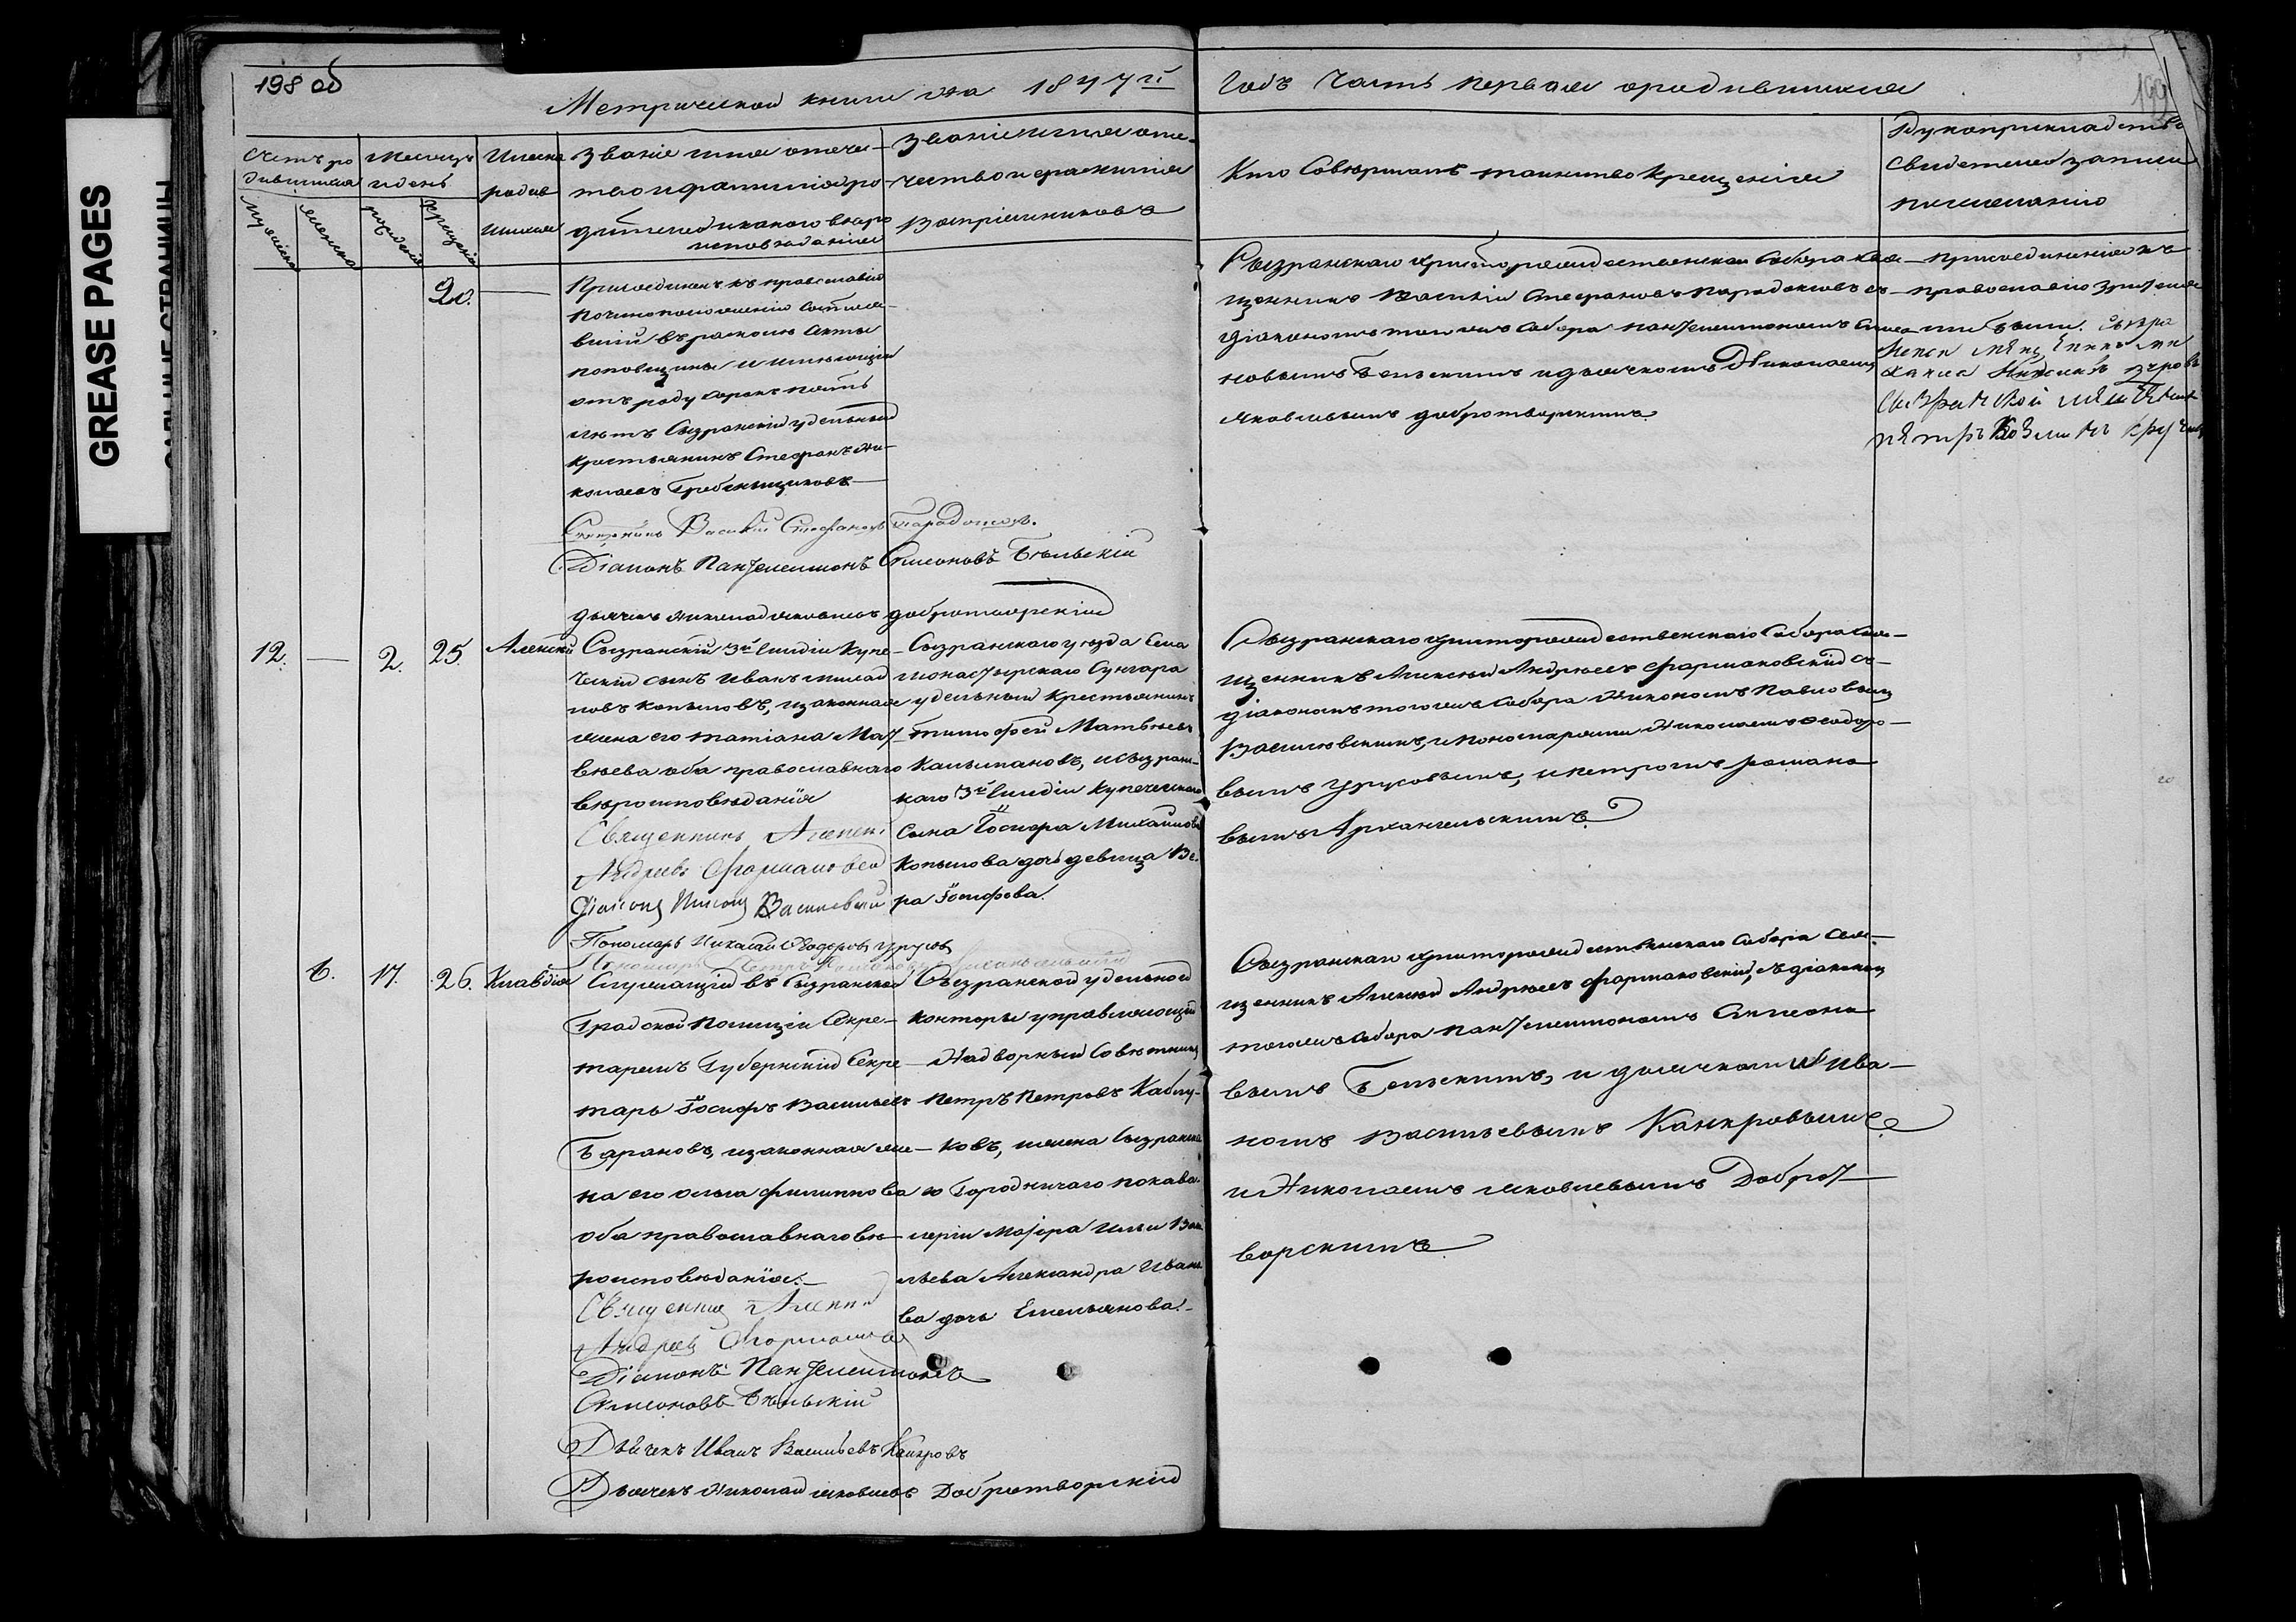 GREASE PAGES
САЛЬНЫЕ СТРАНИЦЫ
198 об
199
Метрической книги на 1847й
Годъ Часть первая о родившихся
Счетъ ро
дившихся
мужеска
женска
Месяцъ
и день
рожденія
крещенія
Имена
родив
шихся
Званіе имя отече-
тво и фамилія ро-
дителей и какого веро
исповѣданія
Званіе имя оте-
чество и фамилія
воспріемниковъ
Кто Совершалъ таинство крещенія
Рукоприкладство
свидетелей записи
по желанію
20.
Присоединенъ къ православію
по чиноположенію состояв-
вшій въ расколѣ секты
поповщины и имеющій
отъ роду сорокъ пять
лѣтъ Сызранскій удѣльный
крестьянинъ Стефанъ Ни-
колаевъ Гребеньщиковъ
Священникъ Василій Стефановъ Парадоксовъ.
Діаконъ Пантелеимонъ Симеоновъ Бѣльскій
дьячекъ Николай Яковлевъ Добротворскій
Сызранскаго христорождественскаго Собора Свя-
щенникъ Василій Стефановъ Парадоксовъ съ
діакономъ того жъ Собора Пантелеимономъ Симео
новымъ Бельскимъ и дьячкомъ Николаемъ
Яковлевымъ Добротворскимъ
присоединенія къ
православію зрителя
ми были. Сызра
Сызранской мещанинъ
12. — 2. 25. Алексій
Сызранскій 3й Гилдіи Купе-
ческій сынъ Иванъ Михай
ловъ Копыловъ, и законная
жена его Татіана Мат
вѣева оба православнаго
вѣроисповѣданія
Священникъ Алексій
Андреевъ Фармаковскій
Діаконъ Никонъ Василевскій
Пономарь Николай Ѳеодоровъ Урусовъ
Пономарь Петръ Романовъ Архангельскій
Сызранскаго уѣзда Села
монастырскаго Сунгара
удельный Крестьянинъ
Тимофей Матвѣевъ
Калмыковъ, и сызран-
скаго 3й Гилдіи Купеческаго
Сына Іосифа Михайлова
Копылова дочь девица Ве-
ра Іосифова.
Сызранскаго христорождественскаго Собора Свя-
щенникъ Алексѣй Андреевъ Фармаковскій съ
діакономъ того жъ Собора Никономъ Павловымъ
Василевскимъ, и пономарями Николаемъ Ѳеодоро-
вымъ Урусовымъ, и Петромъ Романо
вымъ Архангельскимъ
6. 17. 26. Клавдія
Служащій въ Сызранской
Градской Полиціи Секре-
таремъ Губернскій Секре-
тарь Іосифъ Васильевъ
Барановъ, и законная же-
на его Ольга Филиппова
оба православнаго вѣ-
роисповѣданія.
Священникъ Алексій
Андреевъ Фармаковскій
Діаконъ Пантелеимонъ
Симеоновъ Бѣльскій
Дьячекъ Иванъ Васильевъ Канкровъ
Дьячекъ Николай Яковлевъ Добротворскій
Сызранской удельной
конторы управляющій
Надворный Советникъ
Петръ Петровъ Каблу-
ковъ, и жена Сызранска
го Городничаго по кава-
леріи Маіора Ильи Васи
льева Александра Ивано
ва дочь Емельянова.
Сызранскаго христорождественскаго Собора Свя-
щенникъ Алексѣй Андреевъ Фармаковскій, съ діакономъ
того жъ Собора Пантелеимономъ Симеоно
вымъ Бельскимъ, и дьячками Ива-
номъ Васильевымъ Канкровымъ
и Николаемъ Яковлевымъ Доброт-
ворскимъ